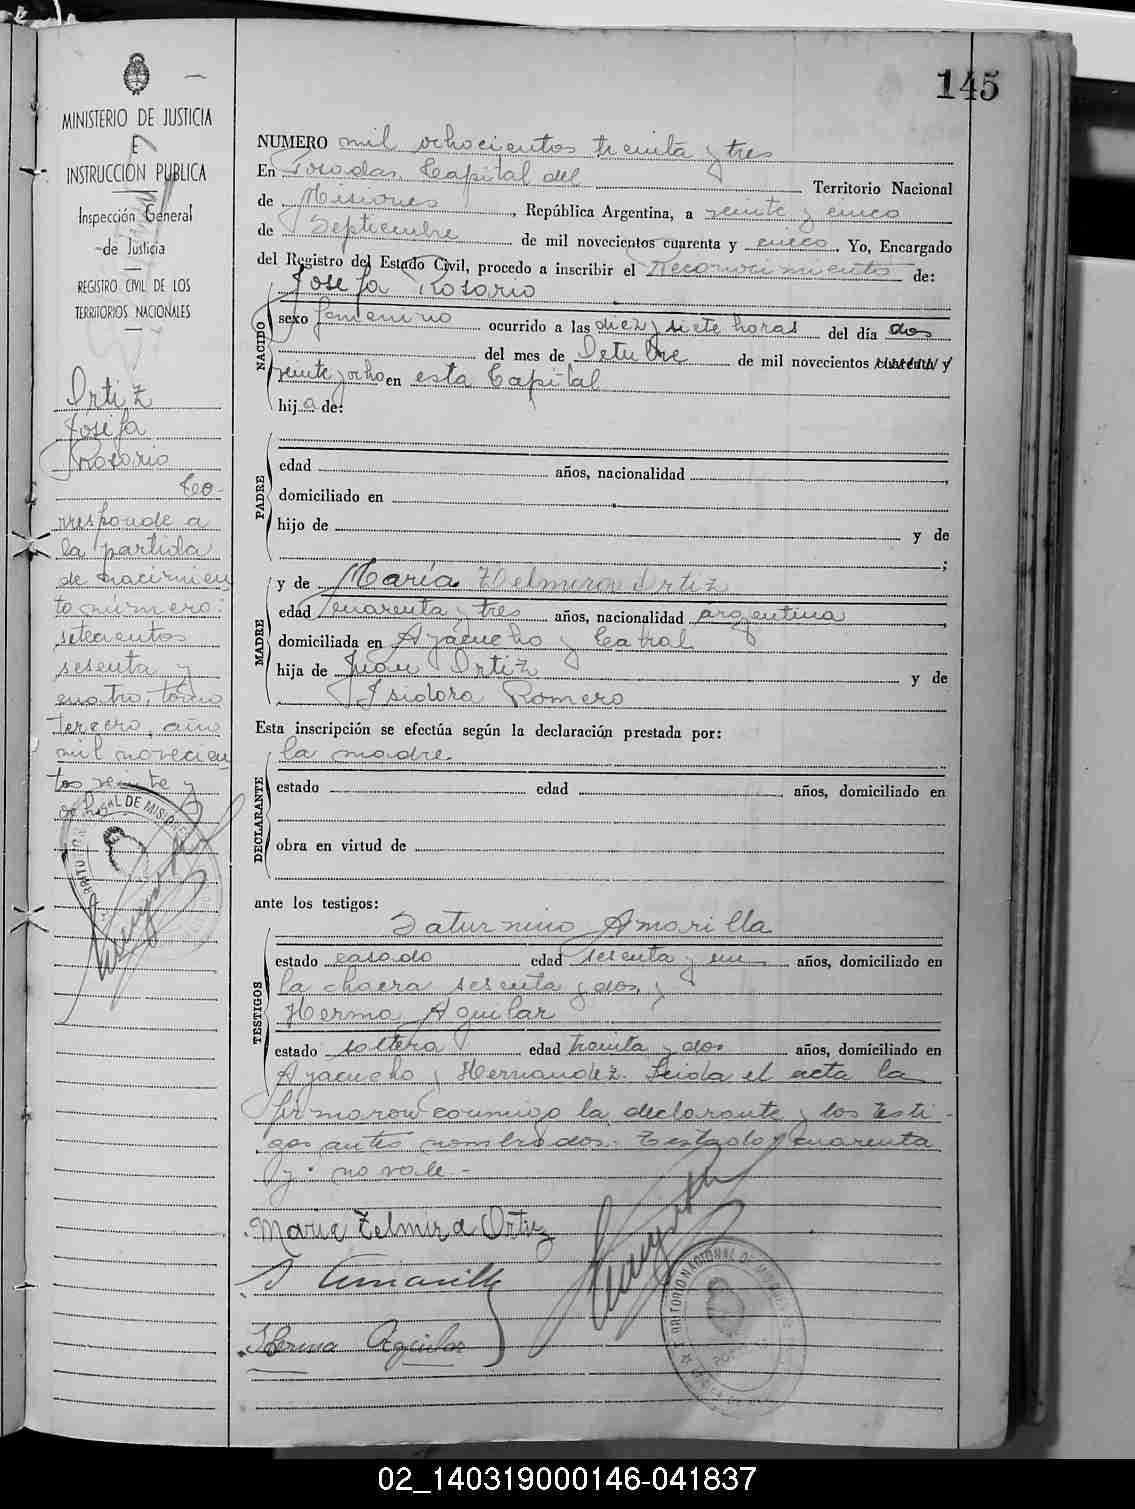 145
MINISTERIO DE JUSTICIA
E
INSTRUCCIÓN PUBLICA
Inspección General
de Justicia
REGISTRO CIVIL DE LOS
TERRITORIOS NACIONALES
Ortiz
Josefa
Rosario
Co-
rresponde a
la partida
de nacimien
to número:
setecientos
sesenta y
cuatro, tomo
tercero, año
mil novecien
tos veinte y
ocho
NUMERO mil ochocientos treinta y tres
En Posadas Capital del Territorio Nacional
de Misiones, República Argentina, a veinte y cinco
de Septiembre de mil novecientos cuarenta y cinco. Yo, Encargado
del Registro del Estado Civil, procedo a inscribir el Reconocimiento de:
Josefa Rosario
NACIDO
sexo femenino ocurrido a las diez y siete horas del día dos
del mes de Octubre de mil novecientos cuarenta y
veinte y ocho en esta Capital
hija de:
PADRE
edad años, nacionalidad ,
domiciliado en
hijo de y de
;
MADRE
y de María Zelmira Ortiz
edad cuarenta y tres años, nacionalidad argentina,
domiciliada en Ayacucho y Catral
hija de Juan Ortiz y de
Isidora Romero
Esta inscripción se efectúa según la declaración prestada por:
la madre
DECLARANTE
estado edad años, domiciliado en
obra en virtud de
ante los testigos:
Saturnino Amarilla
TESTIGOS
estado casado edad sesenta y un años, domiciliado en
la chacra sesenta y dos, y
Herma Aguilar
estado soltera edad treinta y dos años, domiciliado en
Ayacucho y Hernandez. Leida el acta la
firmaron conmigo la declarante y los testi-
gos antes nombrados. Testado cuarenta
y: no vale.-
Maria Zelmira Ortiz
S Amarilla
Herma Aguilar
TERRITORIO NACIONAL DE MISIONES
02_140319000146-041837